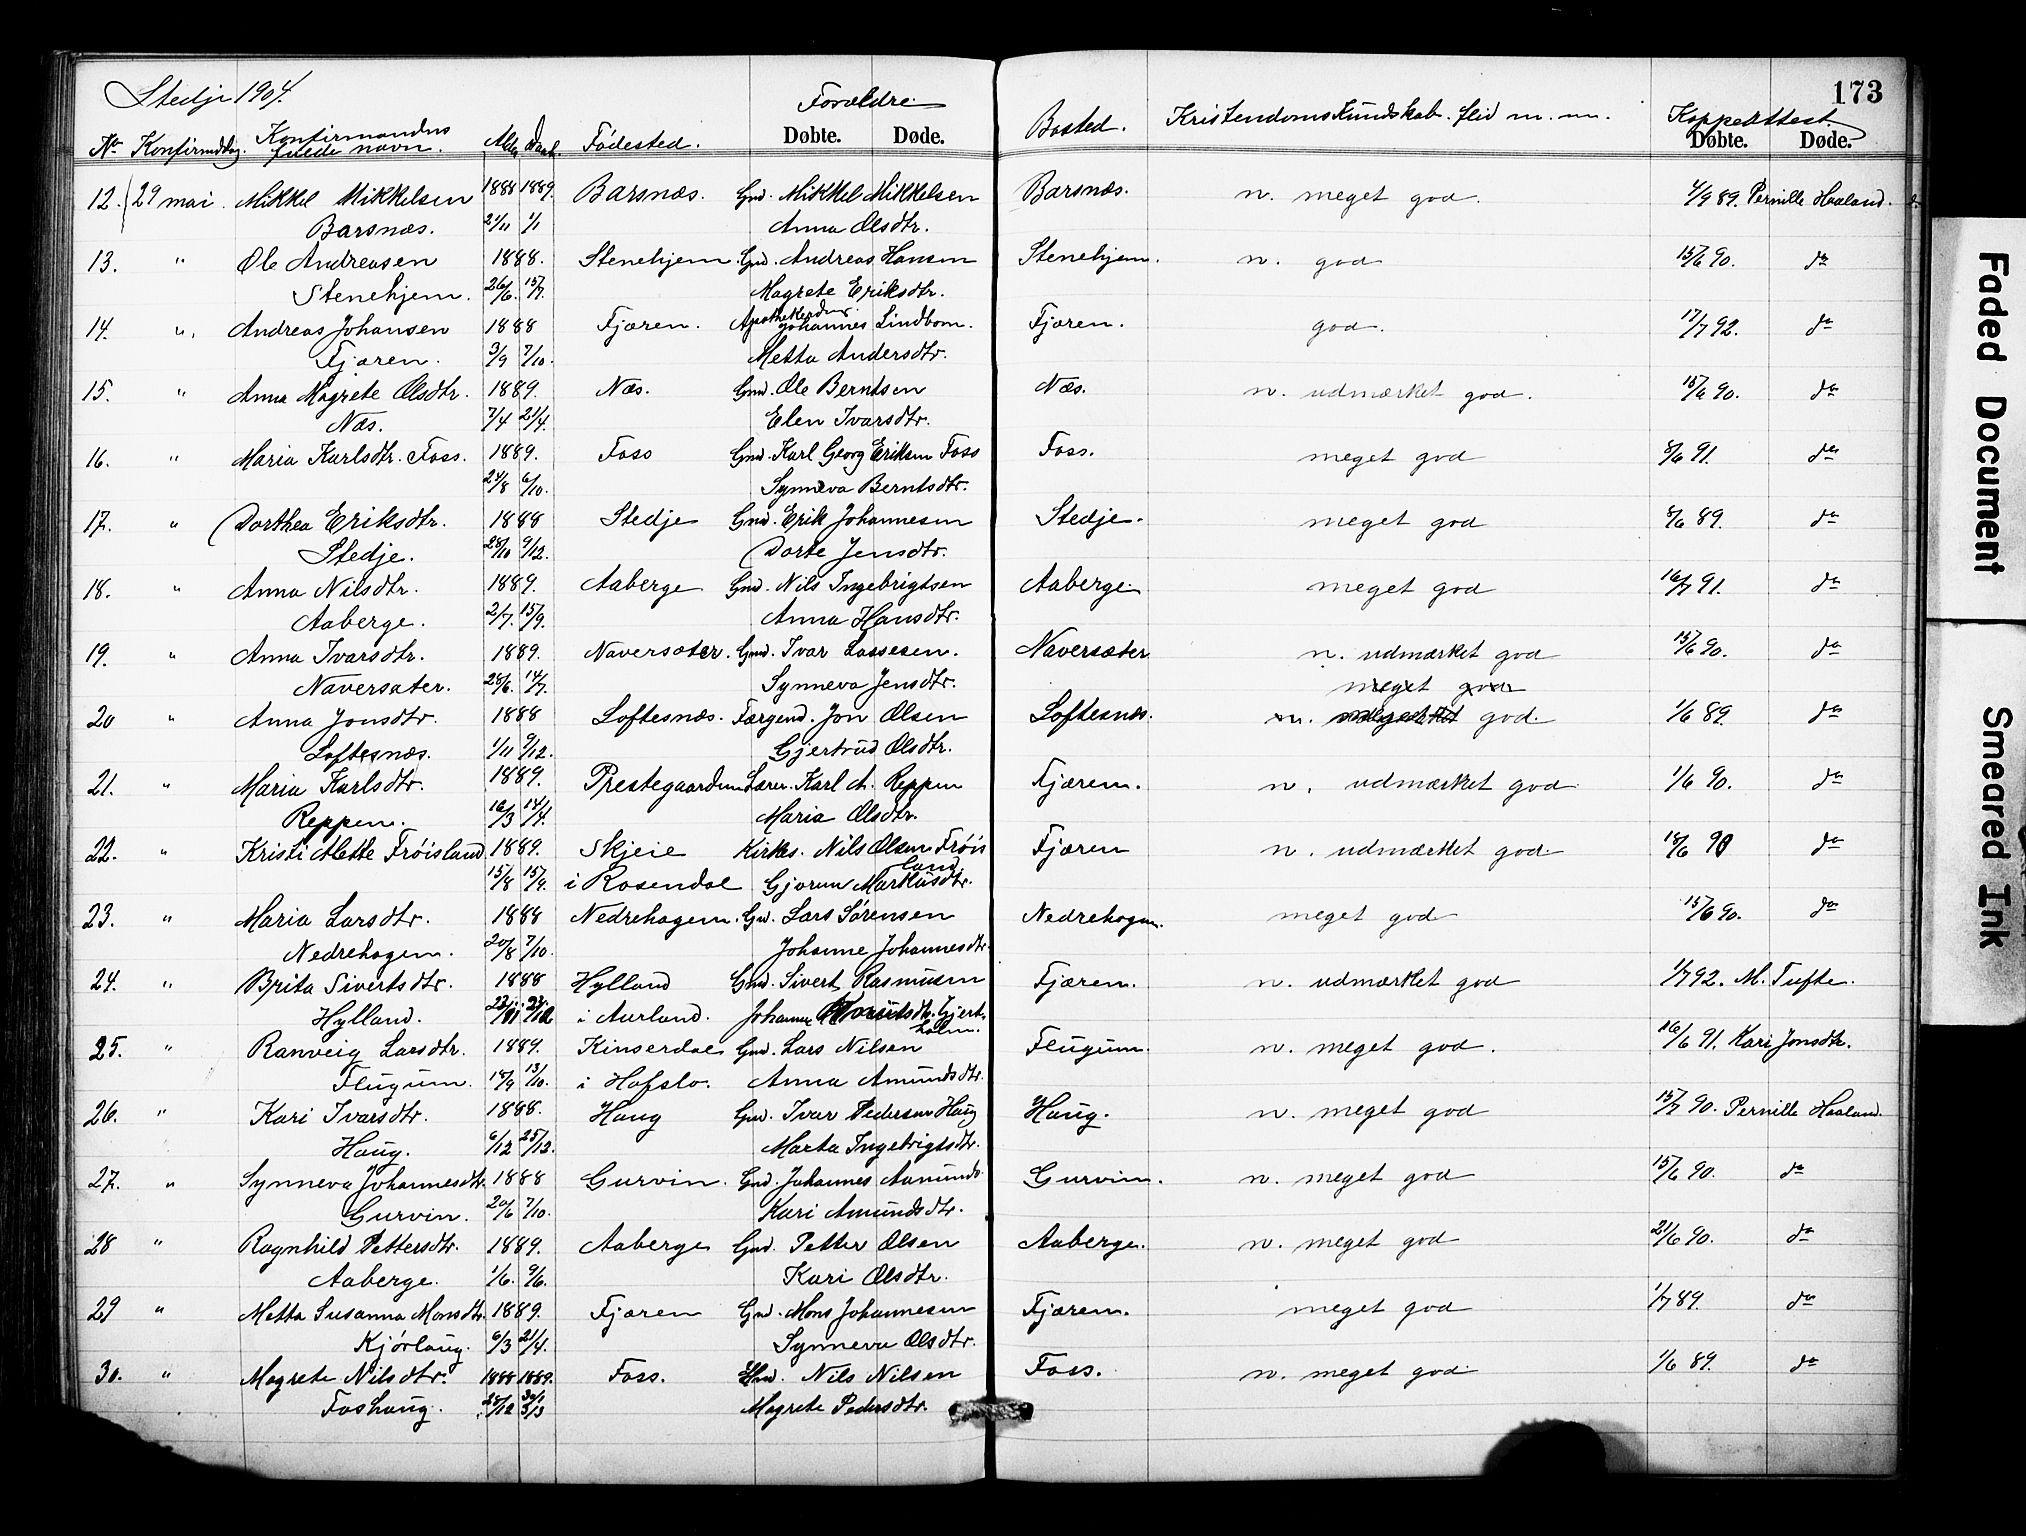 Stedje 1904.
173
Forældre
Døbte. Døde.
Bosted. Kristendomskundskab. flid m. m. Koppeattest
No Konfirmddag. Konfirmandens fulde navn. Alder Daab. Fødested.
Døbte. Døde.
12. 29 mai. Mikkel Mikkelsen 1888 1889. Barsnæs. Gmd. Mikkel Mikkelsen Barsnæs. n. meget god. 4/9 89. Pernille Haaland.
Barsnæs. 21/11 1/1 Anna Olsdtr.
13. " Ole Andreasen 1888. Stenehjem. Gmd. Andreas Hansen Stenehjem. n. god 15/6 90. do
Stenehjem. 26/6. 15/7. Magrete Eriksdtr.
14. " Andreas Johansen 1888 Fjæren. Johannes Lindbom. Fjæren. god. 17/7 92. do
Fjæren. 3/9 7/10. Metta Andersdtr.
15. " Anna Magrete Olsdtr. 1889. Næs. Gmd. Ole Berntsen Næs. n. udmærket god. 15/6 90. do
Næs. 7/4 21/4. Elen Ivarsdtr.
16. " Maria Karlsdtr. Foss. 1889. Foss Gmd. Karl Georg Eriksen Foss Foss. meget god 8/6 91. do
24/8 6/10. Synneva Berntsdtr.
17. " Dorthea Eriksdtr. 1888 Stedje Gmd. Erik Johannesen Stedje. meget god 8/6 89. do
Stedje. 28/10 9/12. Dorte Jensdtr.
18. " Anna Nilsdtr. 1889. Aaberge Gmd. Nils Ingebrigtsen Aaberge. meget god 16/7 91. do
Aaberge. 2/7. 15/9. Anna Hansdtr.
19. " Anna Ivarsdtr. 1889. Naversæter. Gmd. Ivar Lassesen. Naversæter n. udmærket god 15/6 90. do
Naversæter. 28/6. 14/7. Synneva Jensdtr. meget god
20 " Anna Jonsdtr. 1888 Loftesnæs. Færgemd. Jon Olsen Loftesnæs. n. god. 1/6 89. do
Loftesnæs. 1/11 9/12. Gjertrud Olsdtr.
21. " Maria Karlsdtr. 1889. Prestegaarden Lærer. Karl A. Reppen Fjæren. n. udmærket god 1/6 90. do
Reppen. 16/3 14/4. Maria Olsdtr.
22. " Kristi Mette Frøisland 1889. Skjeie Kirkes. Nils Olsen Frøis Fjæren n. udmærket god 18/6 90 do
land.
15/8 15/9. i Rosendal Gjørun Markusdtr.
23. " Maria Larsdtr. 1888 Nedrehagen. Gmd. Lars Sørensen Nedrehagen. meget god 15/6 90. do
Nedrehagen. 20/8 7/10. Johanne Johannesdtr.
24. " Brita Sivertsdtr. 1888 Hylland Gmd. Sivert Rasmusen Fjæren. n. udmærket god 1/7 92. M. Tufte.
Hylland. i Aurland. Johanne
25. " Ranveig Larsdtr. 1889. Kinserdal Gmd. Lars Nilsen Flugum. n. meget god. 16/6 91. Kari Jonsdtr.
Flugum. 18/9 13/10. i Hafslo. Anna Amundsdtr.
26. " Kari Ivarsdtr. 1888. Haug Gmd. Ivar Pedersen Haug Haug. n. meget god 15/7 90. Pernille Haaland.
Haug. 6/12 25/12. Marta Ingebrigtsdtr.
27. " Synneva Johannesdtr. 1888 Gurvin. Gmd. Johannes Aamunds Gurvin. n. meget god 15/6 90. do
Gurvin. 20/6 7/10. Kari Amundsdtr.
28 " Ragnhild Pettersdtr. 1889. Aaberge Gmd. Petter Olsen Aaberge. n. meget god 21/6 90. do
Aaberge. 1/6. 9/6. Kari Olsdtr.
29 " Metta Susanna Monsdtr. 1889. Fjæren Gmd. Mons Johannesen Fjæren. meget god 1/7 89. do
Kjørlaug. 6/3 21/4. Synneva Olsdtr.
30. " Magrete Nilsdtr. 1888 1889. Foss. Nils Nilsen Foss. n. meget god. 1/6 89. do
Foshaug. Magrete Pedersdtr.
Faded Document
Smeared Ink